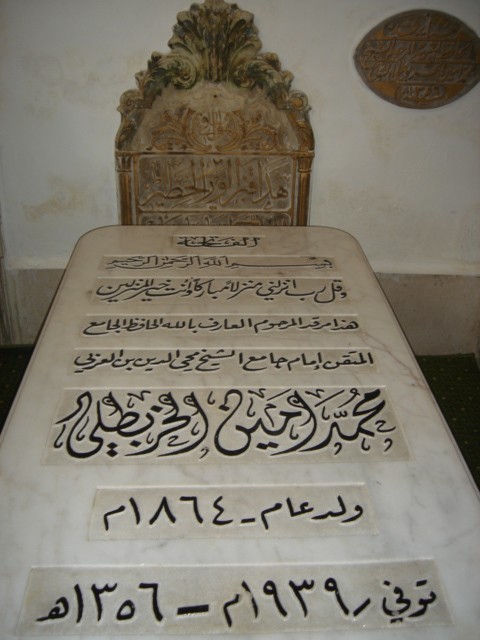 هذا قبر الوزير الخطير
الفاتحة
بسم الله الرحمن الرحيم
وقل رب انزلني منزلا مباركا وأنت خير المنزلين
هذا مرقد المرحوم العارف بالله الحافظ الجامع
المتقن إمام جامع الشيخ محي الدين بن العربي
محمد أمين الخربطلي
ولد عام - ١٨٦٤م
توفي ١٩٣٩م - ١٣٥٦هـ